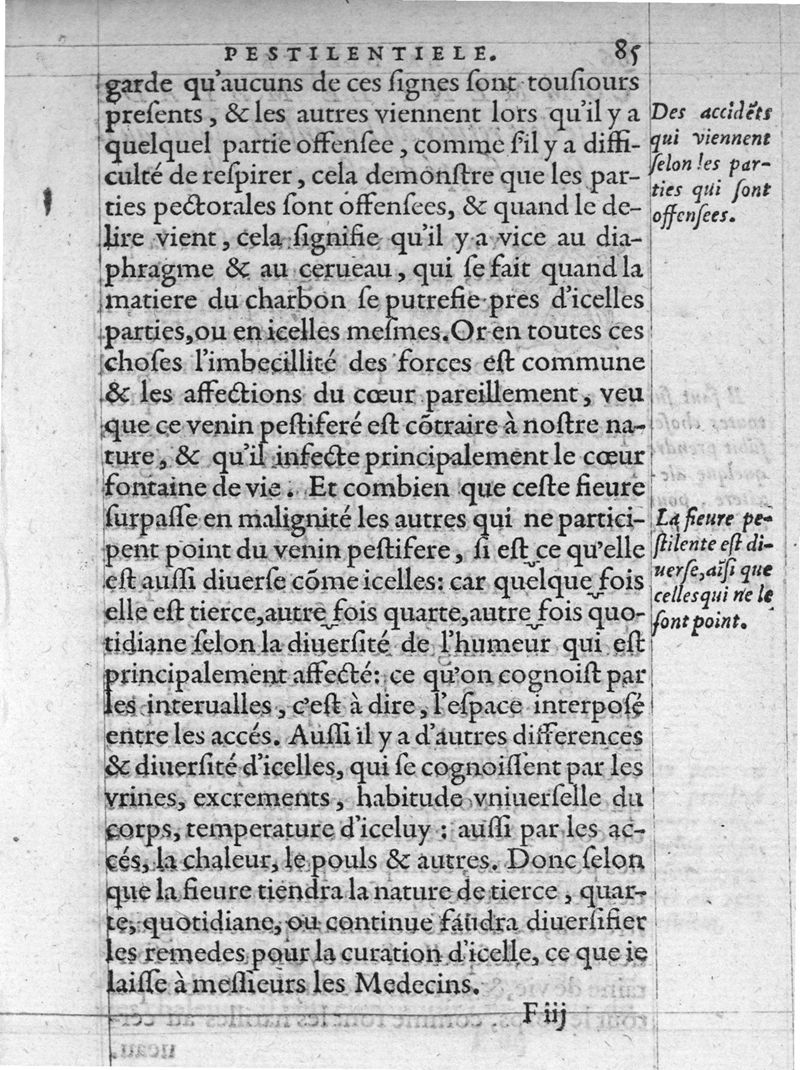 PESTILENTIELE. 85
garde qu'aucuns de ces ſignes ſont touſiours
preſents, & les autres viennent lors qu'il y a
quelquel partie offenſee, comme ſ'il y a diffi-
culté de reſpirer, cela demonſtre que les par-
ties pectorales ſont offenſees, & quand le de-
lire vient, cela ſignifie qu'il y a vice au dia-
phragme & au cerueau, qui ſe fait quand la
matiere du charbon ſe putrefie pres d'icelles
parties, ou en icelles meſmes. Or en toutes ces
choſes l'imbecillité des forces eſt commune
& les affections du cœur pareillement, veu
que ce venin peſtiferé eſt cõtraire à noſtre na-
ture, & qu'il infecte principalement le cœur
fontaine de vie. Et combien que ceſte fieure
ſurpaſſe en malignité les autres qui ne partici-
pent point du venin peſtifere, ſi eſt ce qu'elle
eſt auſſi diuerſe cõme icelles: car quelque fois
elle eſt tierce, autre fois quarte, autre fois quo-
tidiane ſelon la diuerſité de l'humeur qui eſt
principalement affecté: ce qu'on cognoiſt par
les interualles, c'eſt à dire, l'eſpace interpoſé
entre les accés. Auſſi il y a d'autres differences
& diuerſité d'icelles, qui ſe cognoiſſent par les
vrines, excrements, habitude vniuerſelle du
corps, temperature d'iceluy: auſſi par les ac-
cés, la chaleur, le pouls & autres. Donc ſelon
que la fieure tiendra la nature de tierce, quar-
te, quotidiane, ou continue faudra diuerſifier
les remedes pour la curation d'icelle, ce que ie
laiſſe à meſſieurs les Medecins.
F iij
Des accidẽts
qui viennent
ſelon les par-
ties qui ſont
offenſees.
La fieure pe-
ſtilente eſt di-
uerſe, aĩſi que
celles qui ne le
ſont point.